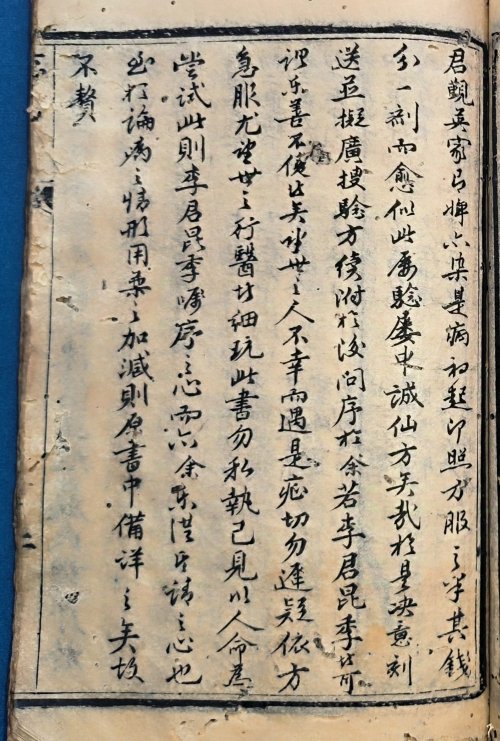 君觀其家有婢亦染是病初起即照方服之半其錢
分一劑而愈似此屡驗屡中誠仙方矣哉於是決意刻
送並擬廣搜驗方續附於後问序於余若李君昆季皆可
謂樂善不倦者矣望世之人不幸而遇是症切勿遲疑依方
急服尤望世之行醫者細玩此書勿私執己見以人命為
嘗试此則李君昆季嘱序之心而亦余樂從其請之心也
至於論病之情形用藥之加減則原書中備详之矣故
不贅
二